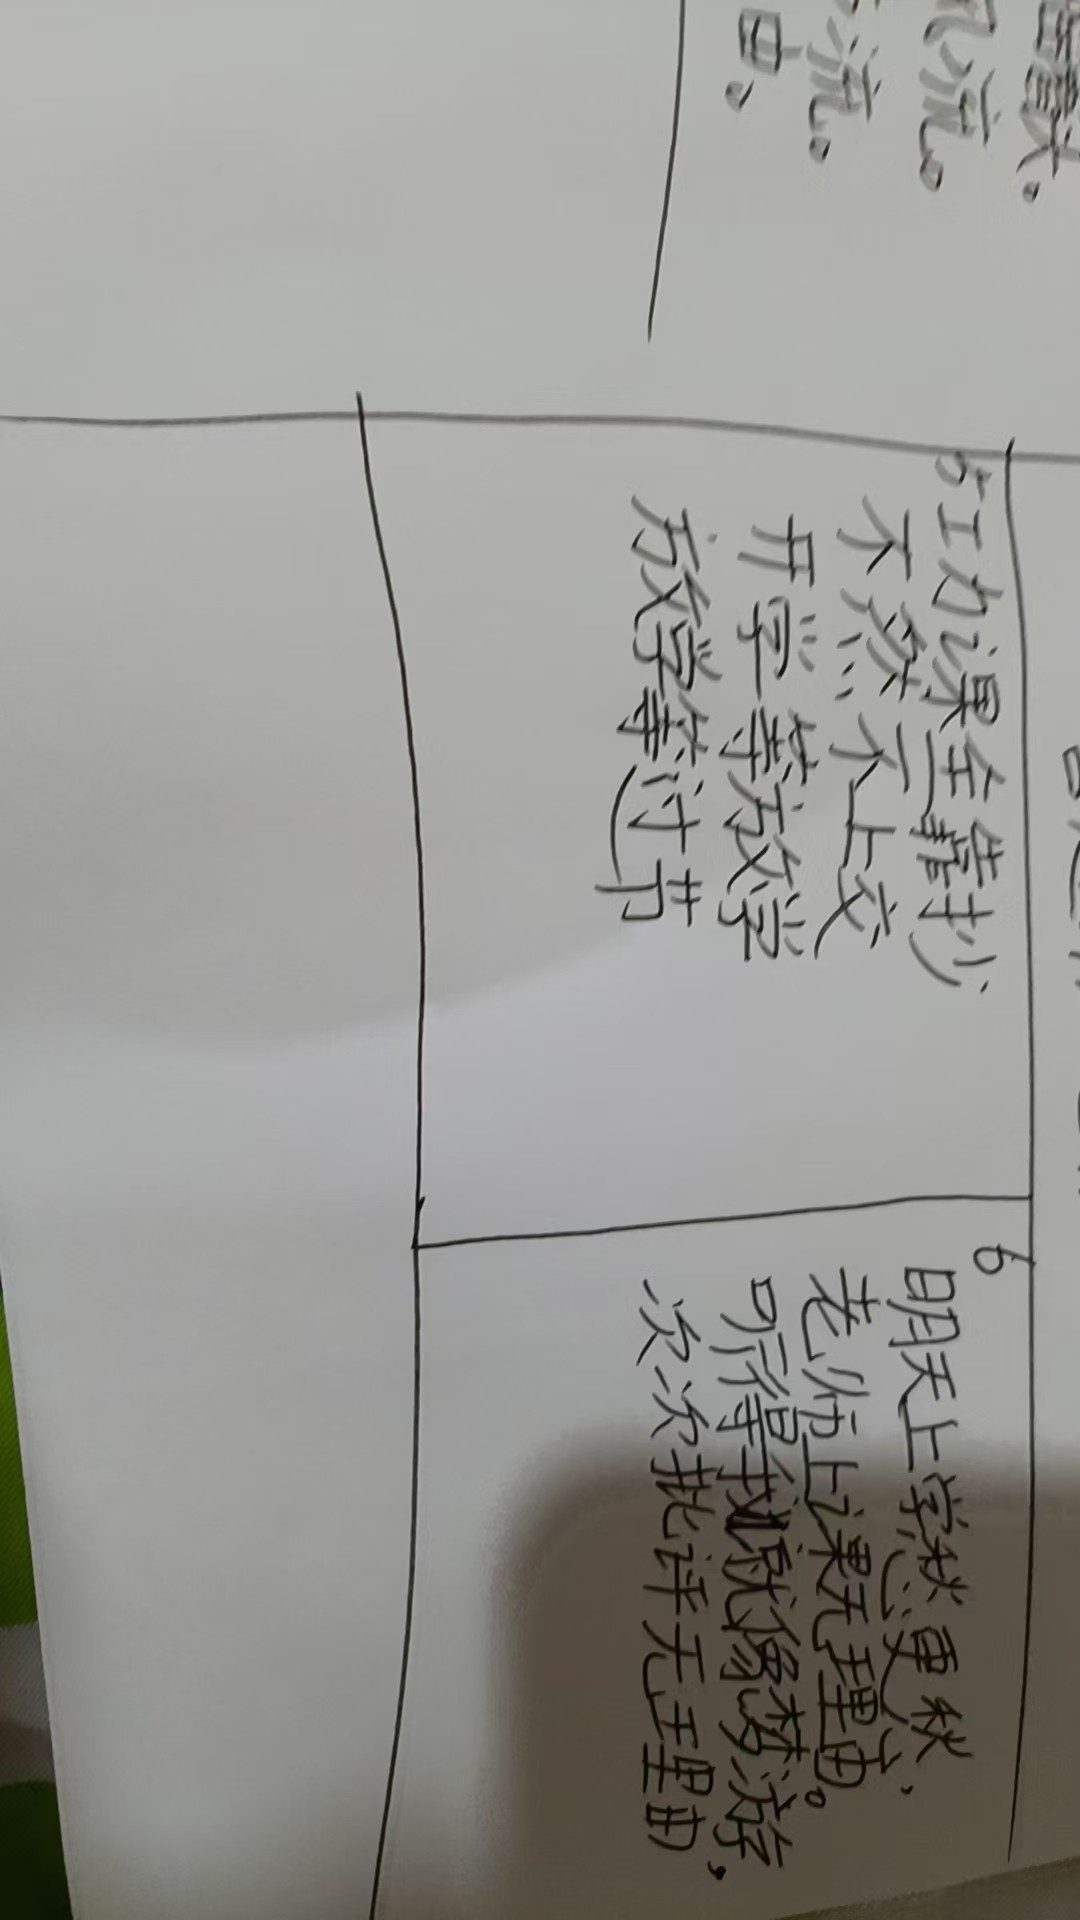 风流。
流。
由、
5工力课全靠抄
不然不上交
开学等放学
放学等过节
6
明天上学愁更秋、
老师上课无理由。
听得我就像梦游
次次批评无理由,